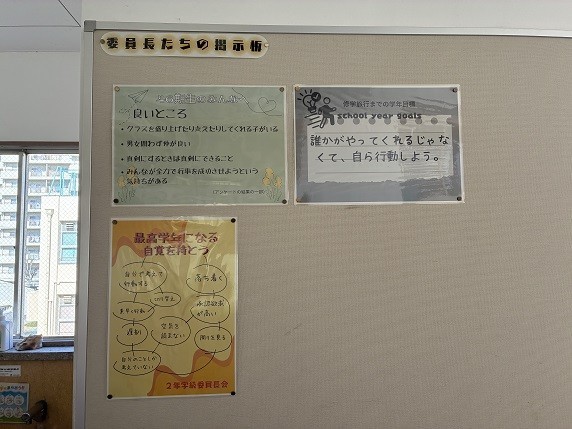 委員長たちの掲示板
良いところ
・クラスを盛り上げたりたえたりしてくれる子がいる
・男女関わず仲が良い
・真剣にするときは真剣にできること
・みんなが全力で行事を成功させようという
気持ちがある
(アンケートの結果の一部)
修学旅行までの学年目標
school year goals
誰かがやってくれるじゃな
くて、自ら行動しよう。
最高学年になる
自覚を持とう
自分で考えて
行動する
落ち着く
切り替え
承認欲求
が高い
遅刻
空気を
読まない
周りを見る
自分のことしか
考えていない
2年学級委員長会